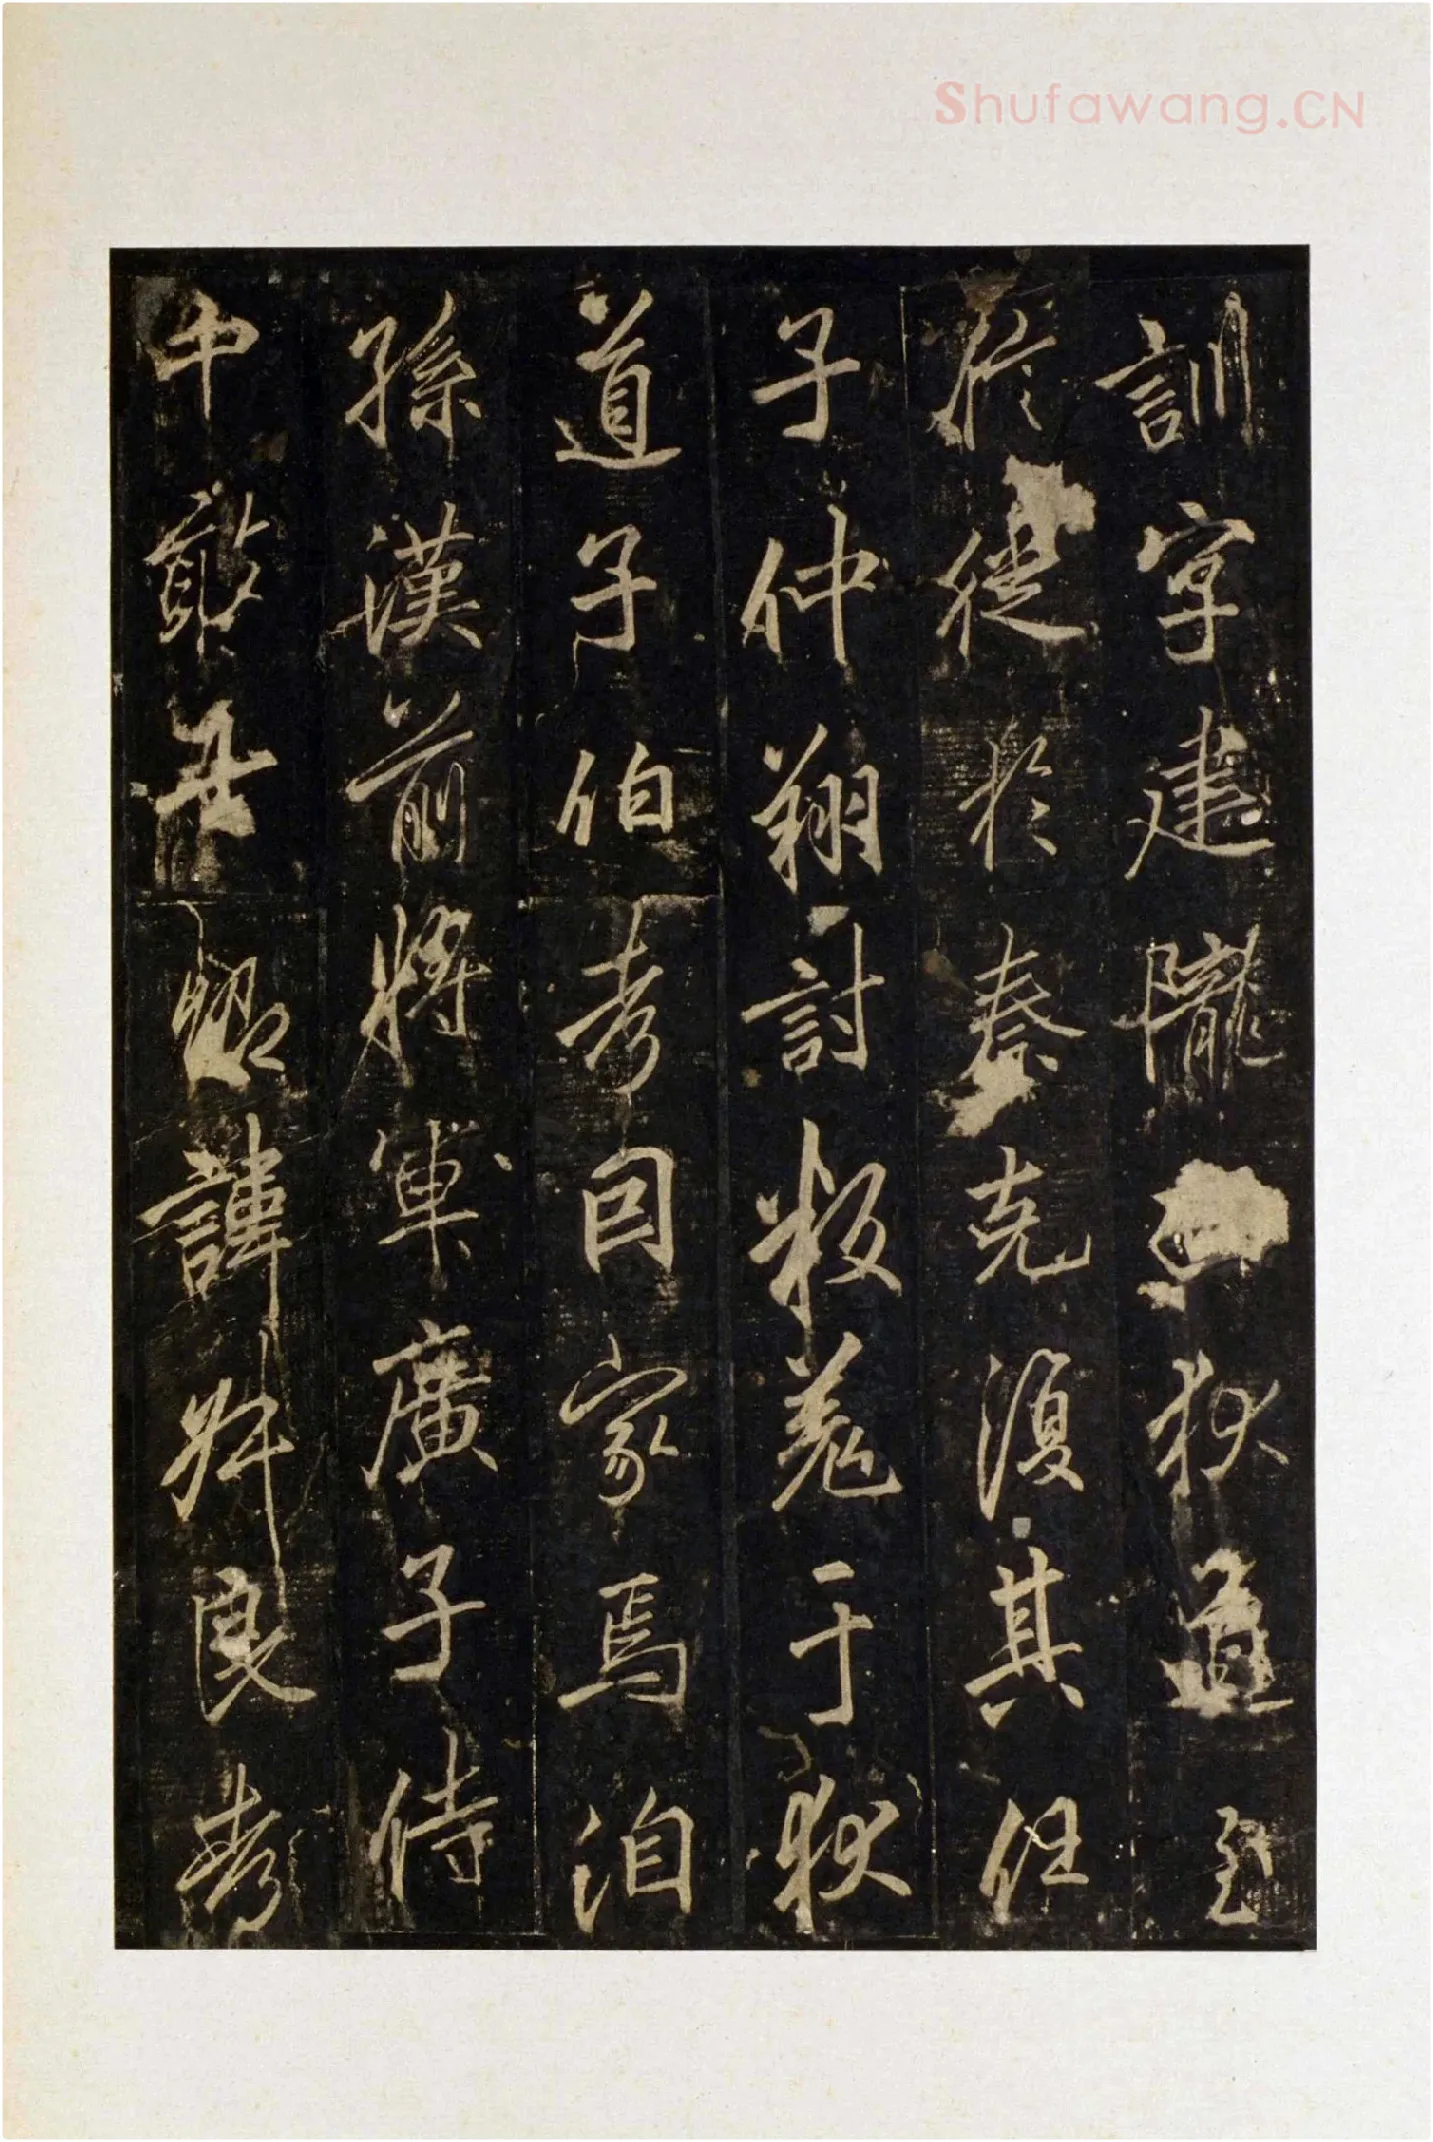 Shufawang.CN
訓字建隴狄道至
於徙於秦克復其任
子仲翔討叛羌于狄
道子伯考因家焉洎
孫漢前將軍廣子侍
中敢昭諱良考